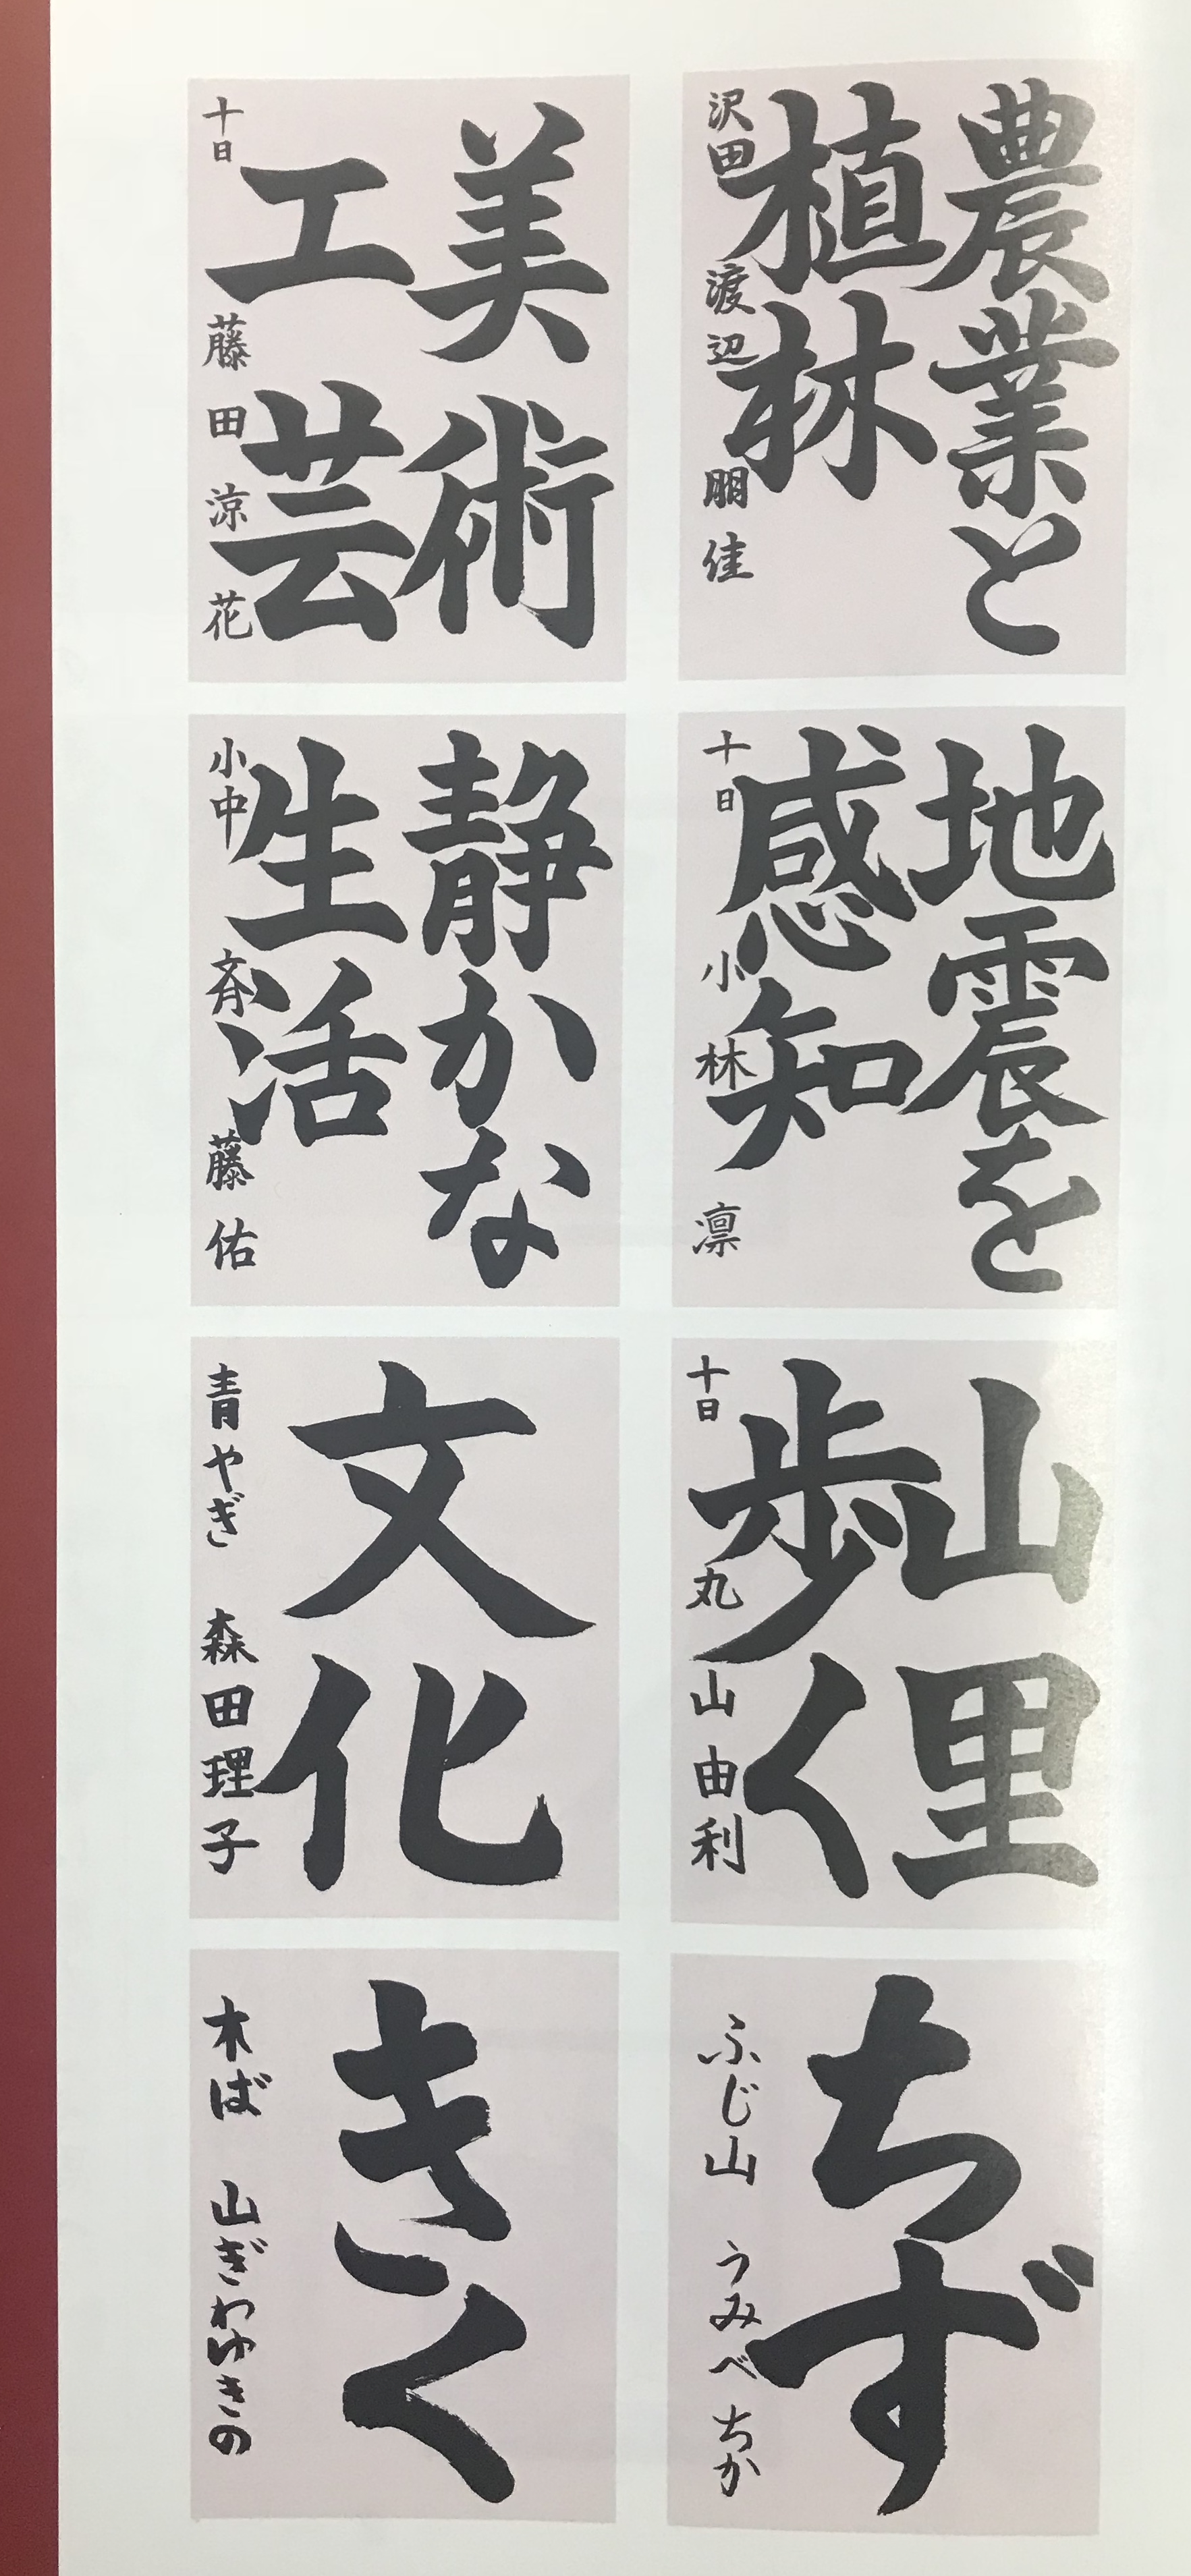 農業と
植林
沢田 渡辺朋佳
美術
工芸
十日 藤田涼花
地震を
感知
十日 小林凛
静かな
生活
小中 斉藤佑
山里
歩く
十日 丸山由利
文化
青やぎ 森田理子
ちず
ふじ山 うみべちか
きく
木ば 山ぎわゆきの